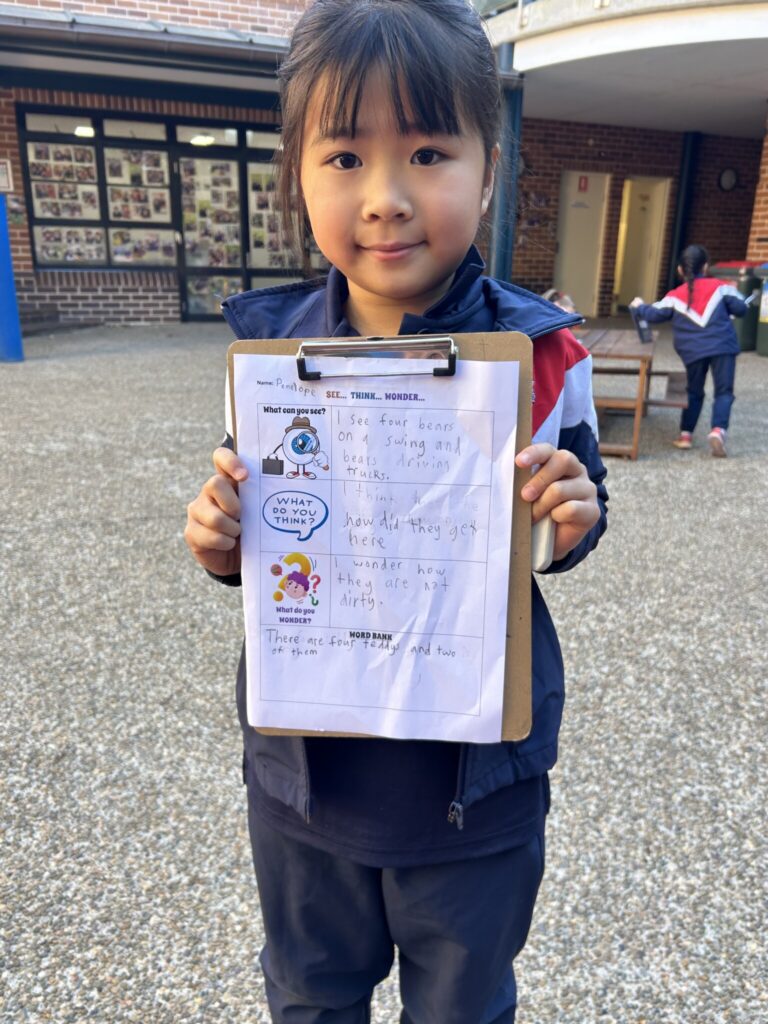 Name: Penelope
SEE... THINK... WONDER...
What can you see?
I see four bears
on a swing and
bears driving
trucks.
WHAT
DO YOU
THINK?
I think
how did they get
here
What do you
WONDER?
I wonder how
they are not
dirty.
WORD BANK
There are four teddys and two
of them